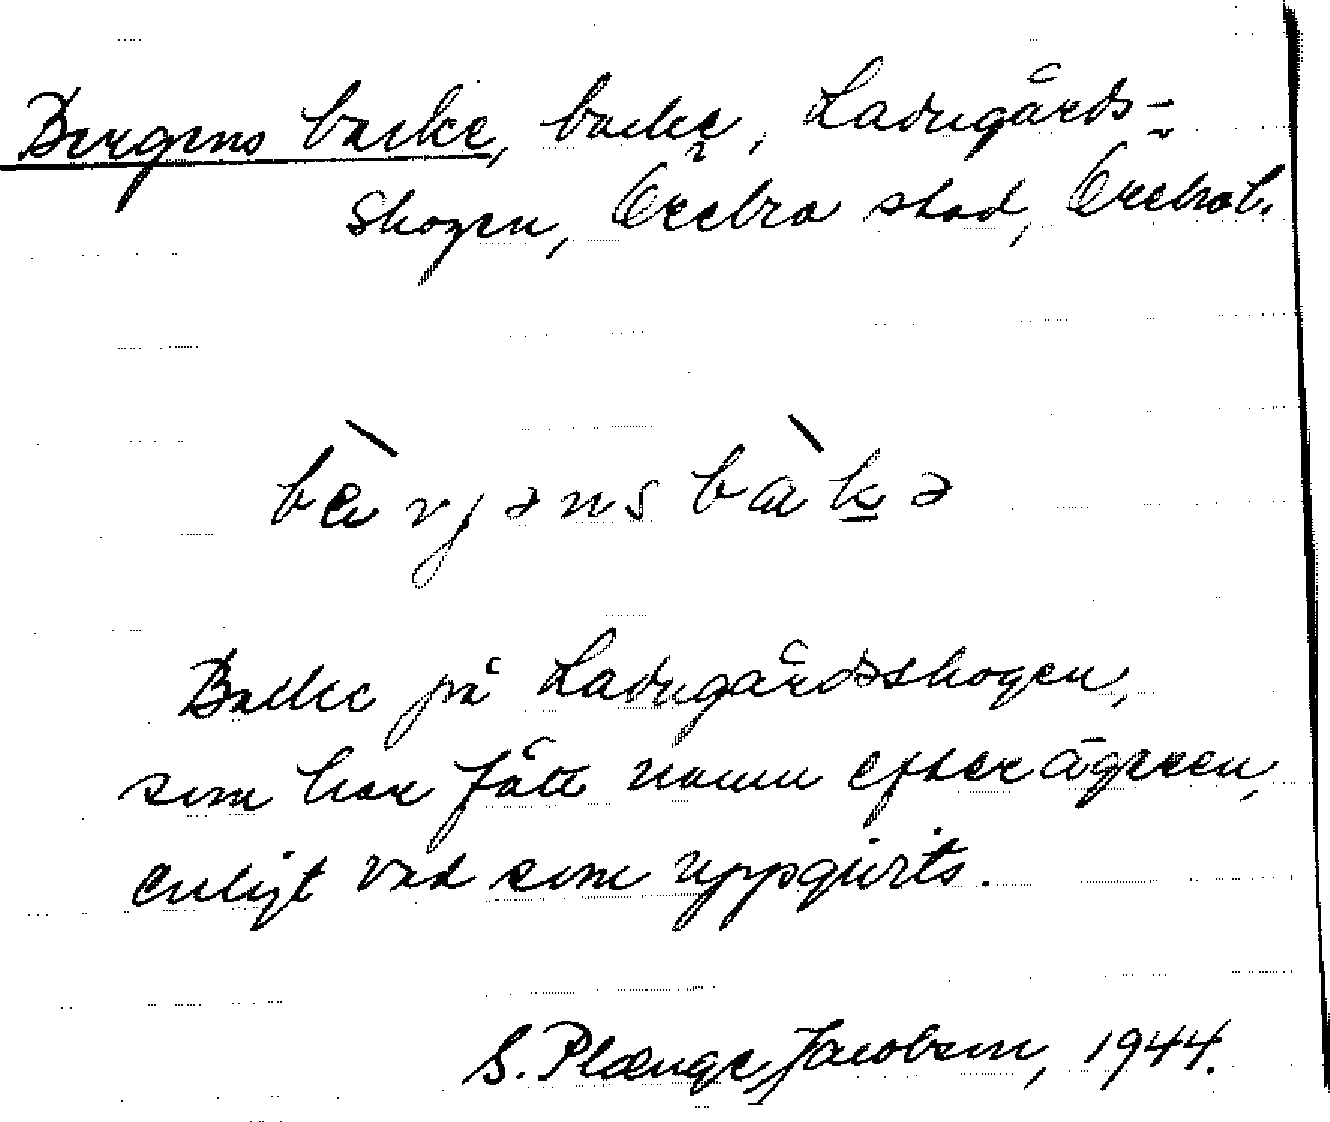 Bergens backe, backe, Ladugårds-
skogen, Örebro stad, Örebro l.
bæ̀rjənsbàkə
Backe på Ladugårdsskogen,
som har fått namn efter ägaren,
enligt vad som uppgivits.
S. Plænge Jacobson, 1944.